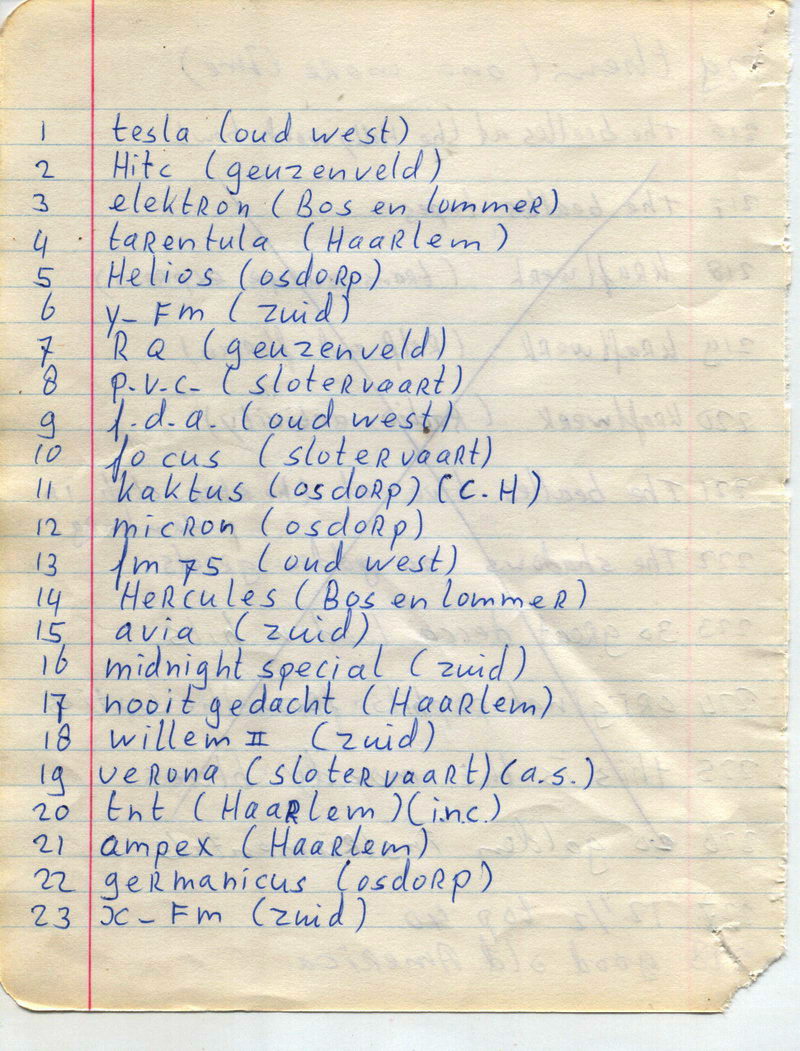 1 tesla (oud west)
2 Hitc (geuzenveld)
3 elektRon (Bos en lommer)
4 taRentula (HaaRlem)
5 Helios (osdoRp)
6 y-Fm (zuid)
7 R Q (geuzenveld)
8 p.v.c. (sloteRvaaRt)
9 f.d.a. (oud west)
10 focus (sloteRvaaRt)
11 kaktus (osdoRp) (C.H)
12 micRon (osdoRp)
13 fm 75 (oud west)
14 HeRcules (Bos en lommeR)
15 avia (zuid)
16 midnight special (zuid)
17 nooit gedacht (HaaRlem)
18 willem II (zuid)
19 veRona (sloteRvaaRt) (a.s.)
20 tnt (HaaRlem) (i.n.c.)
21 ampex (HaaRlem)
22 geRmanicus (osdoRp)
23 x-Fm (zuid)